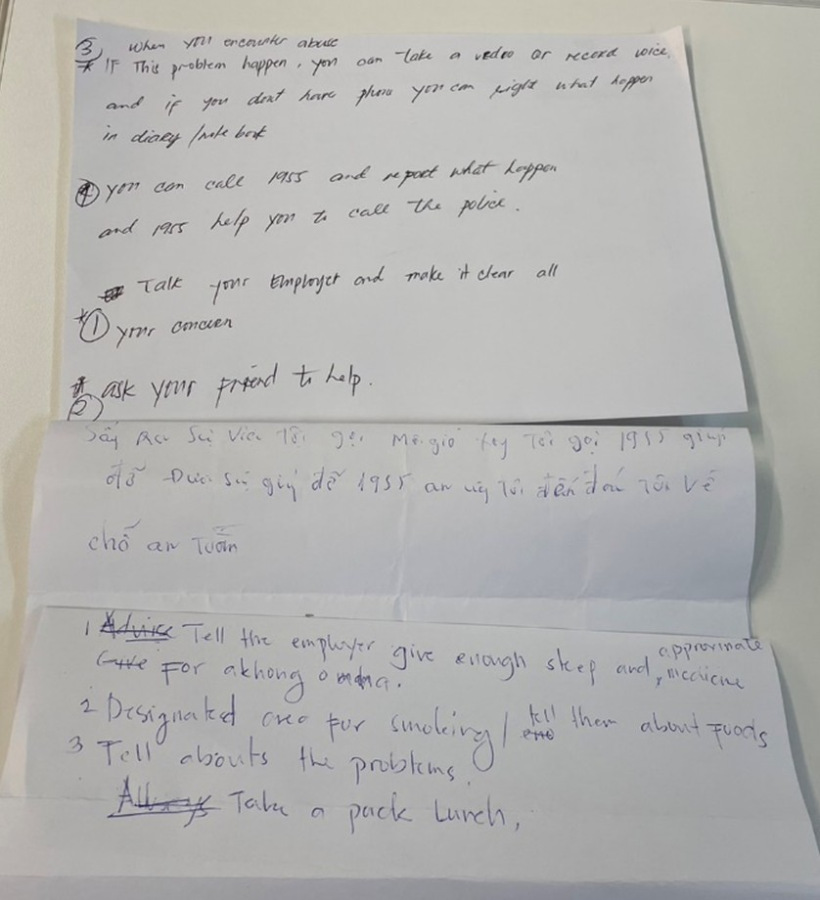 ③ When you encounter abuse
* IF This problem happen, you can take a vedeo or record voice,
and if you dont have phone you can right what happen
in diary / note book
④ you can call 1955 and report what happen
and 1955 help you to call the police.
Talk your Employer and make it clear all
* ① your concern
② ask your friend to help.
Sự Việc Tôi gọi Tôi gọi 1955 giúp
đỡ 1955 Tôi Tôi Về
chỗ an Toàn
1 Advice Tell the employer give enough sleep and, approximate medicine
Give For akhong o
2 Designated area for smoking / tell them about Foods
3 Tell abouts the problems.
Always Take a pack Lunch,